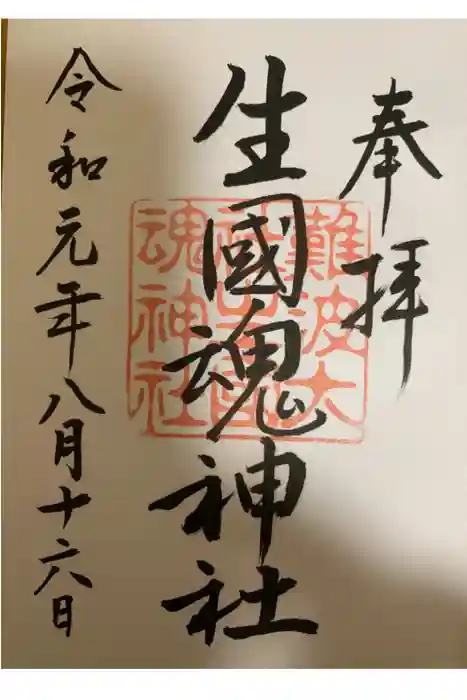 奉拝
生國魂神社
難波大
社生國
魂神社
令和元年八月十六日